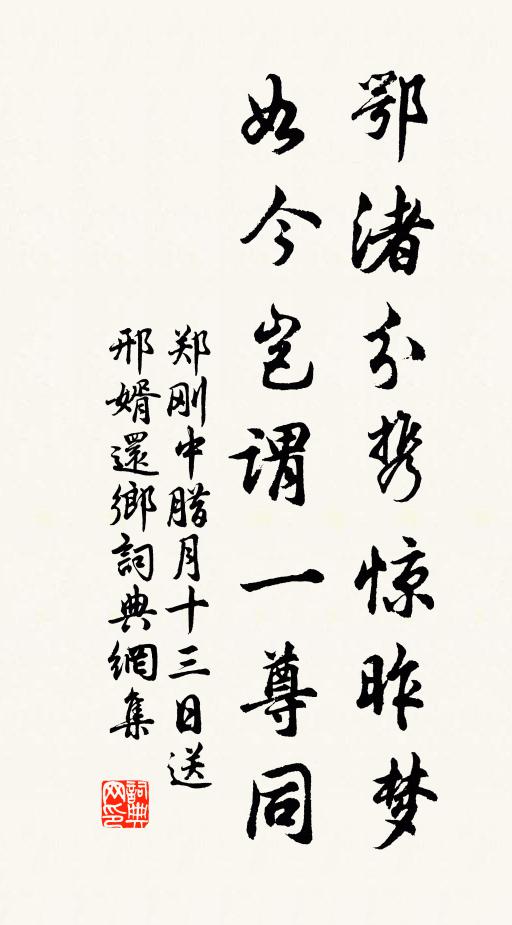 鄂渚分携惊昨梦
如今岂谓一尊同
郑刚中腊月十三日送
邢婿還鄉詞典網集
詞典
网印